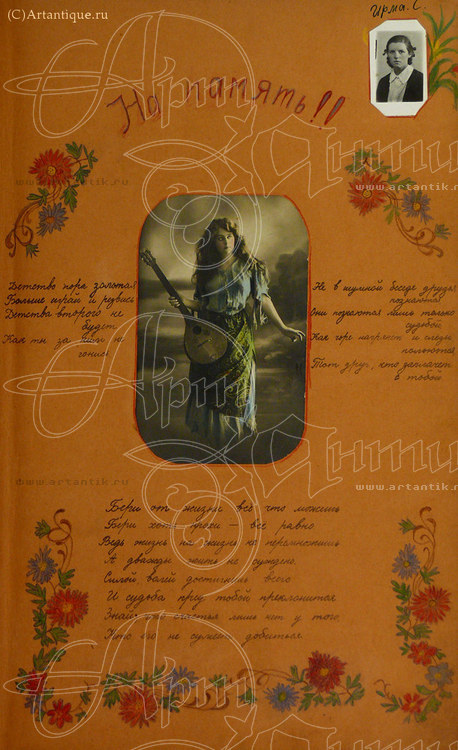 (C)Artantique.ru
Ирма. С.
На память!!
www.artantik.ru
www.artantik.ru
Детство пора золотая
Больше играй и резвись
Детства второго не
будет
Как ты за ним не
гонись!
Не в шумной беседе друзья
познаются
Они познаются лишь только
судьбой
Коль горе нагрянет и слезы
польются
Тот друг, кто заплачет
с тобой.
www.artantik.ru
www.artantik.ru
Бери от жизни всё что можешь
Бери хоть крохи — все равно
Ведь жизнь на жизнь не перемножишь
А дважды жить не суждено.
Силой волей достигнешь всего
И судьба пред тобой преклонится
Знай, что счастья лишь нет у того,
Кто его не сумеет добиться.